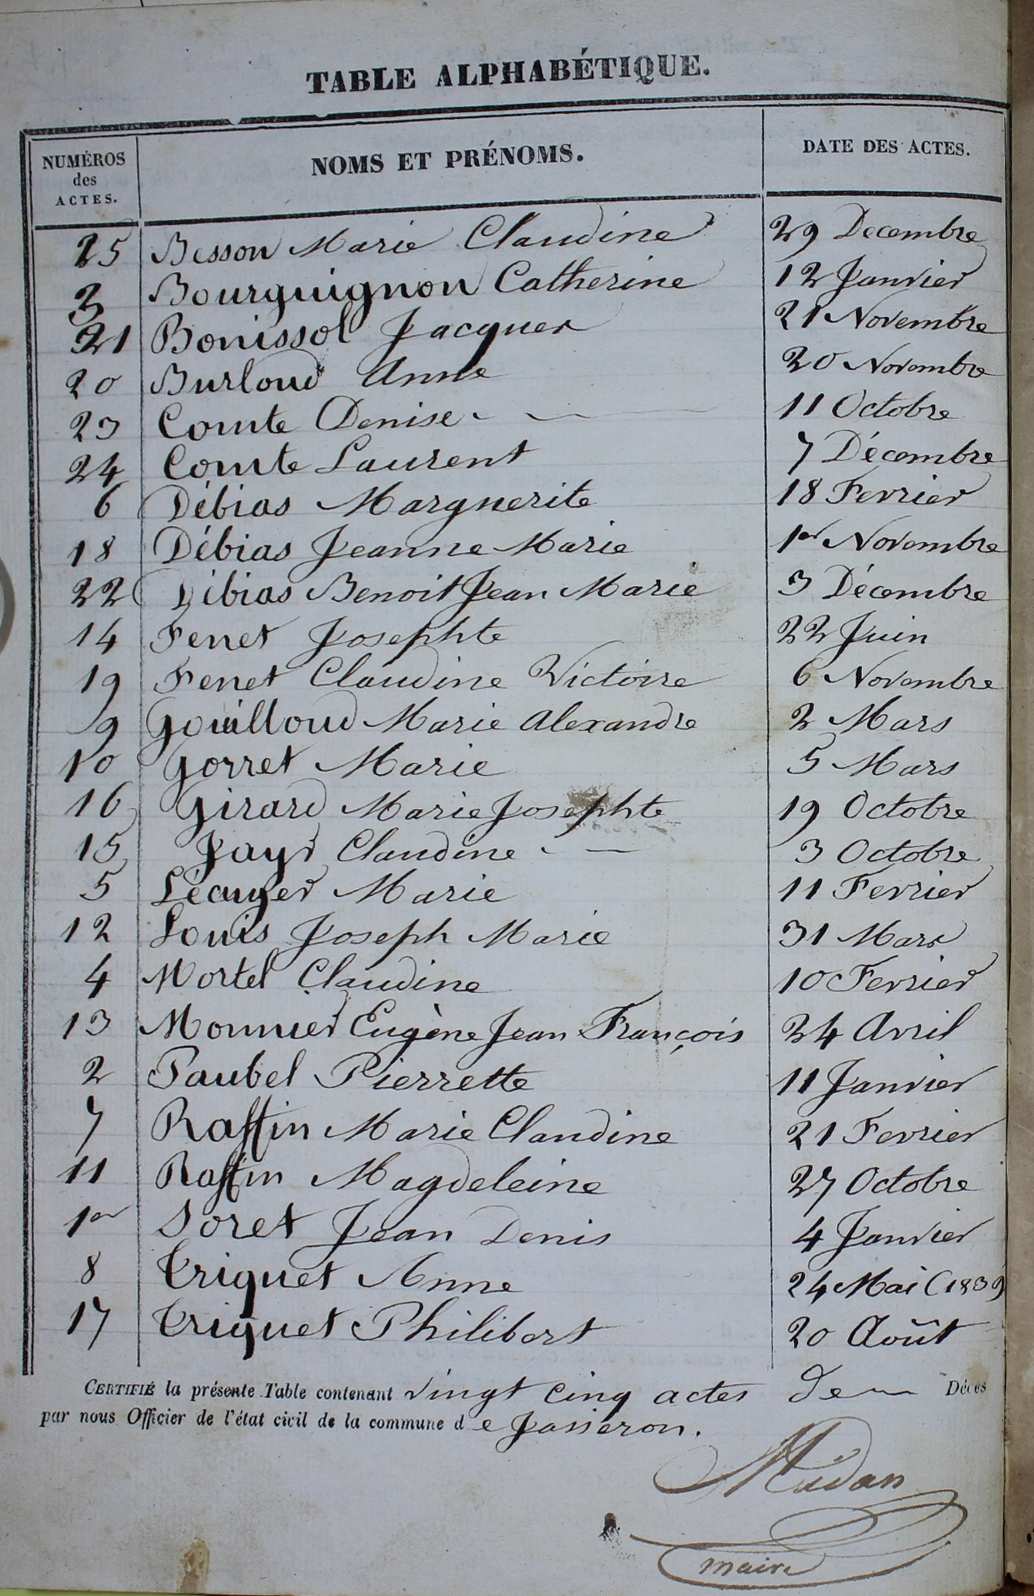 TABLE ALPHABÉTIQUE.
NUMÉROS des ACTES. NOMS ET PRÉNOMS. DATE DES ACTES.
25 Besson Marie Claudine 29 Decembre
3 Bourguignon Catherine 12 Janvier
21 Bonissol Jacques 21 Novembre
20 Burloud Anne 20 Novembre
23 Comte Denise 11 Octobre
24 Comte Laurent 7 Décembre
6 Débias Marguerite 18 Fevrier
18 Débias Jeanne Marie 1er Novembre
22 Débias Benoit Jean Marie 3 Décembre
14 Fenet Josephte 22 Juin
19 Fenet Claudine Victoire 6 Novembre
9 Gouilloud Marie Alexandre 2 Mars
10 Gorret Marie 5 Mars
16 Girard Marie Josephte 19 Octobre
15 Jayr Claudine 3 Octobre
5 Lécuyer Marie 11 Fevrier
12 Louis Joseph Marie 31 Mars
4 Mortel Claudine 10 Fevrier
13 Monnier Eugène Jean François 24 Avril
2 Paubel Pierrette 11 Janvier
7 Raffin Marie Claudine 21 Fevrier
11 Raffin Magdeleine 27 Octobre
1er Soret Jean Denis 4 Janvier
8 Triquet Anne 24 Mai (1839)
17 Triquet Philibert 20 Août
CERTIFIÉ la présente Table contenant vingt cinq actes de Décès
par nous Officier de l'état civil de la commune de Jasseron.
maire